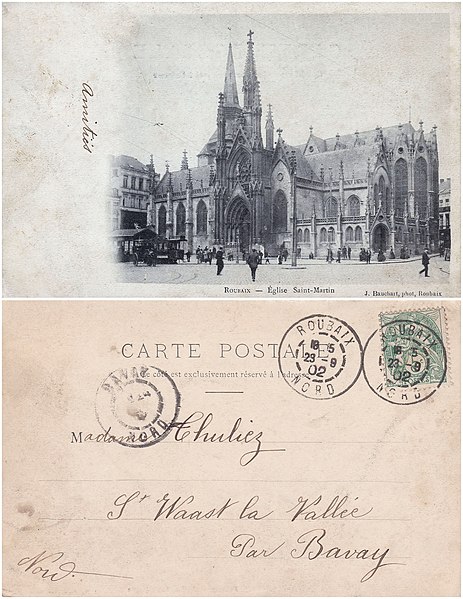 Amitiés
ROUBAIX — Église Saint-Martin
J. Hauchart, phot, Roubaix
CARTE POSTA
côté est exclusivement réservé à l'adresse
ROUBAIX
18 5
23 - 9
02
NORD
ROUBAIX
02
NORD
BAVAY
NORD
Madame Thuliez
St Waast la Vallée
Par Bavay
Nord.